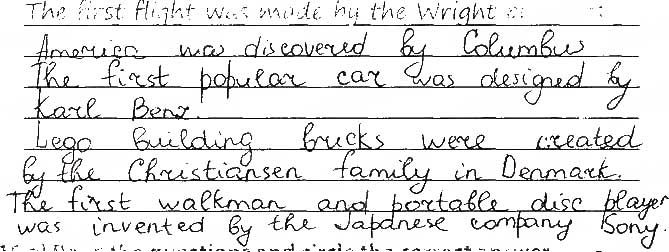 The first flight was made by the Wright
America was discovered by Columbus
The first popular car was designed by
Karl Benz.
Lego building bricks were created
by the Christiansen family in Denmark.
The first walkman and portable disc player
was invented by the Japanese company Sony.
the questions and circle the correct answer